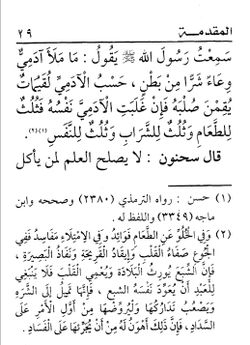 المقدمة ٢٩
سَمِعْتُ رَسُولَ اللهِ ﷺ يَقُولُ : مَا مَلَأَ آدَمِيٌّ
وِعَاءً شَرًّا مِنْ بَطْنٍ ، حَسْبُ الْآدَمِيِّ لُقَيْمَاتٌ
يُقِمْنَ صُلْبَهُ فَإِنْ غَلَبَتِ الْآدَمِيَّ نَفْسُهُ فَثُلُثٌ
لِلطَّعَامِ وَثُلُثٌ لِلشَّرَابِ وَثُلُثٌ لِلنَّفَسِ(١)(٢).
قال سحنون : لا يصلح العلم لمن يأكل
(١) حسن : رواه الترمذي (٢٣٨٠) وصححه وابن
ماجه (٣٣٤٩) واللفظ له .
(٢) وَفِي الْخُلُوِّ عَنِ الطَّعَامِ فَوَائِدُ وَفِي الِامْتِلَاءِ مَفَاسِدُ فَفِي
الْجُوعِ صَفَاءُ الْقَلْبِ وَإِيقَادُ الْقَرِيحَةِ وَنَفَاذُ الْبَصِيرَةِ ،
فَإِنَّ الشِّبَعَ يُورِثُ الْبَلَادَةَ وَيُعْمِي الْقَلْبَ فَلَا يَنْبَغِي
لِلْعَبْدِ أَنْ يُعَوِّدَ نَفْسَهُ الشبع ، فَإِنَّهَا تَمِيلُ إِلَى الشَّرَهِ
وَيَصْعُبُ تَدَارُكُهَا وَلْيُرَوِّضْهَا مِنْ أَوَّلِ الْأَمْرِ عَلَى
السَّدَادِ ، فَإِنَّ ذَلِكَ أَهْوَنُ لَهُ مِنْ أَنْ يُجَرِّئَهَا عَلَى الْفَسَادِ .